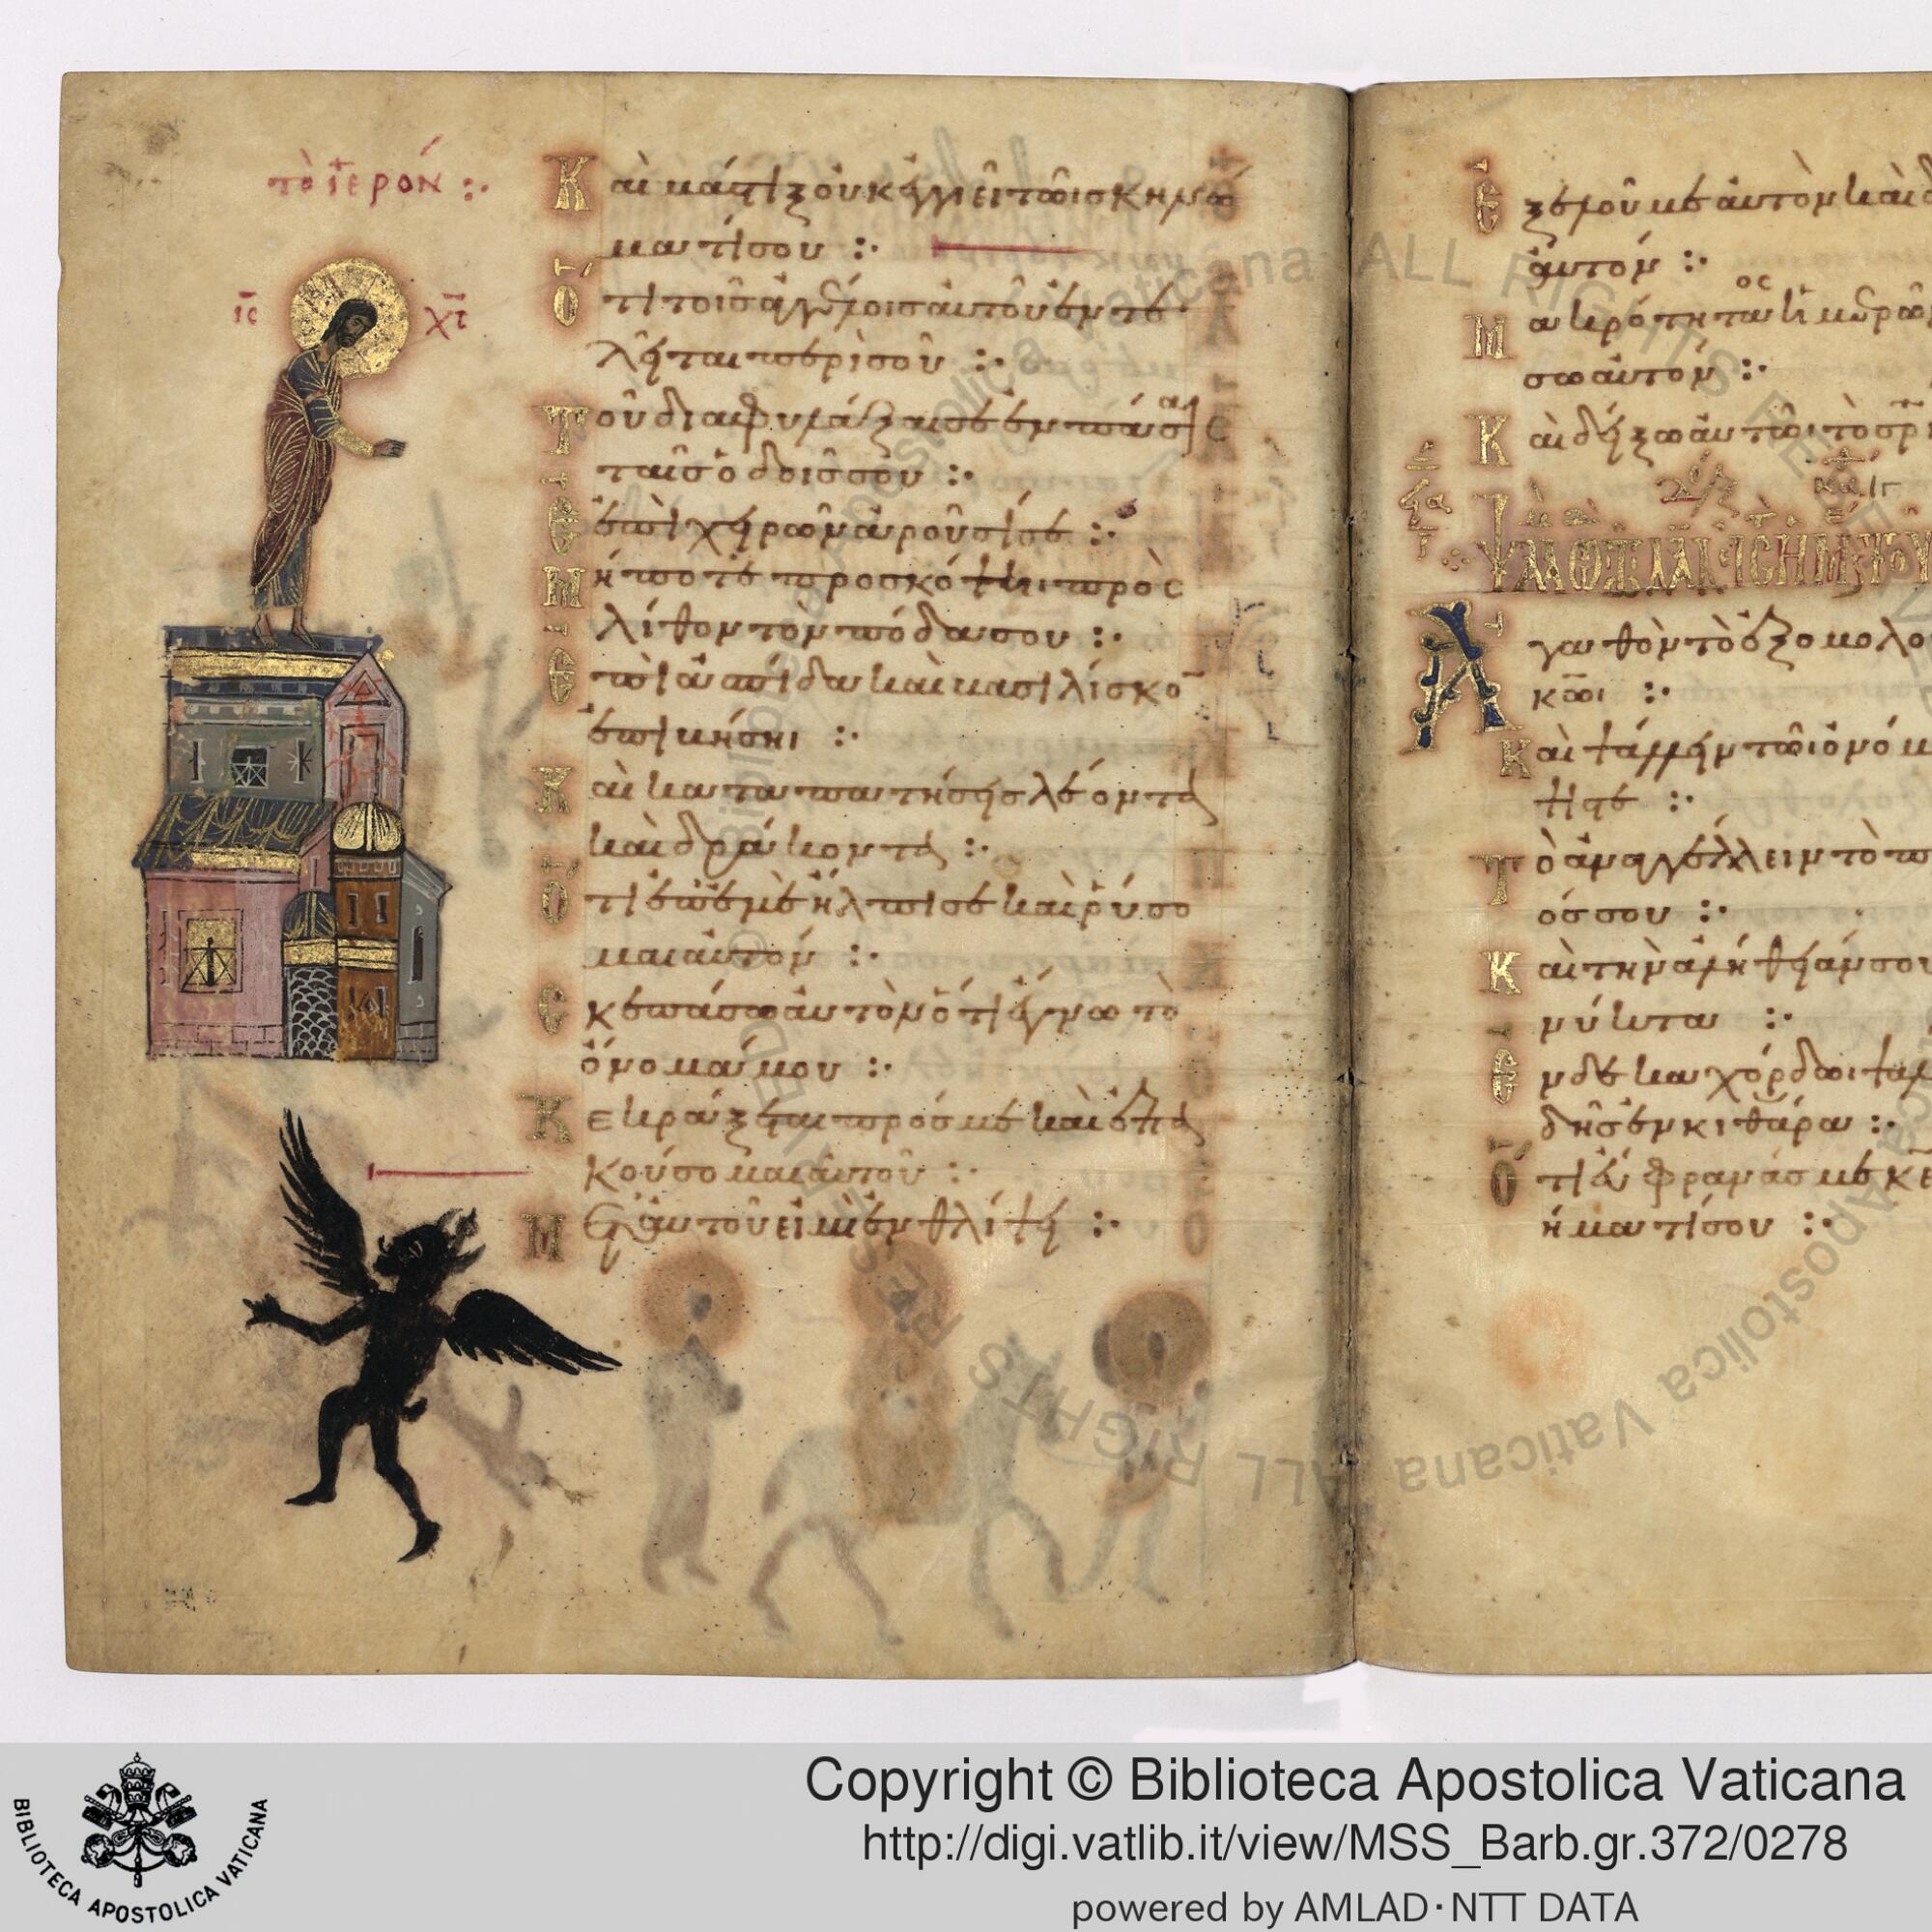 τὸ ἱερόν :·
ις χς
Καὶ μάστιξ οὐκ ἐγγιεῖ τῶι σκηνώ
ματί σου :·
Ὅτι τοῖς ἀγγέλοις αὐτοῦ ἐντε
λεῖται περὶ σοῦ :·
Τοῦ διαφυλάξαι σε ἐν πάσαις
ταῖς ὁδοῖς σου :·
Ἐπὶ χειρῶν ἀροῦσί σε :·
Μήποτε προσκόψηι πρὸς
λίθον τὸν πόδα σου :·
Ἐπὶ ἀσπίδα καὶ βασιλίσκον
ἐπιβήσηι :·
Καὶ καταπατήσεις λέοντα
καὶ δράκοντα :·
Ὅτι ἐπ' ἐμὲ ἤλπισε καὶ ῥύσο
μαι αὐτόν :·
Σκεπάσω αὐτὸν ὅτι ἔγνω τὸ
ὄνομά μου :·
Κεκράξεται πρός με καὶ ἐπα
κούσομαι αὐτοῦ :·
Μετ' αὐτοῦ εἰμὶ ἐν θλίψει :·
Ἐξελοῦμαι αὐτὸν καὶ δ
αὐτόν :·
Μακρότητος ἡμερῶν
σω αὐτόν :·
Καὶ δείξω αὐτῶι τὸ σρ
Ἀγαθὸν τὸ ἐξομολο
κωι :·
Καὶ ψάλλειν τῶι ὀνόμ
ψιστε :·
Τὸ ἀναγγέλλειν τὸ π
ος σου :·
Καὶ τὴν ἀλήθειάν σου
νύκτα :·
Ἐν δεκαχόρδωι ψαλ
δῆς ἐν κιθάρα :·
Ὅτι εὔφρανάς με κε
ήματί σου :·
© Biblioteca Apostolica Vaticana ALL RIGHTS RESERVED
BIBLIOTECA APOSTOLICA VATICANA
Copyright © Biblioteca Apostolica Vaticana
http://digi.vatlib.it/view/MSS_Barb.gr.372/0278
powered by AMLAD·NTT DATA